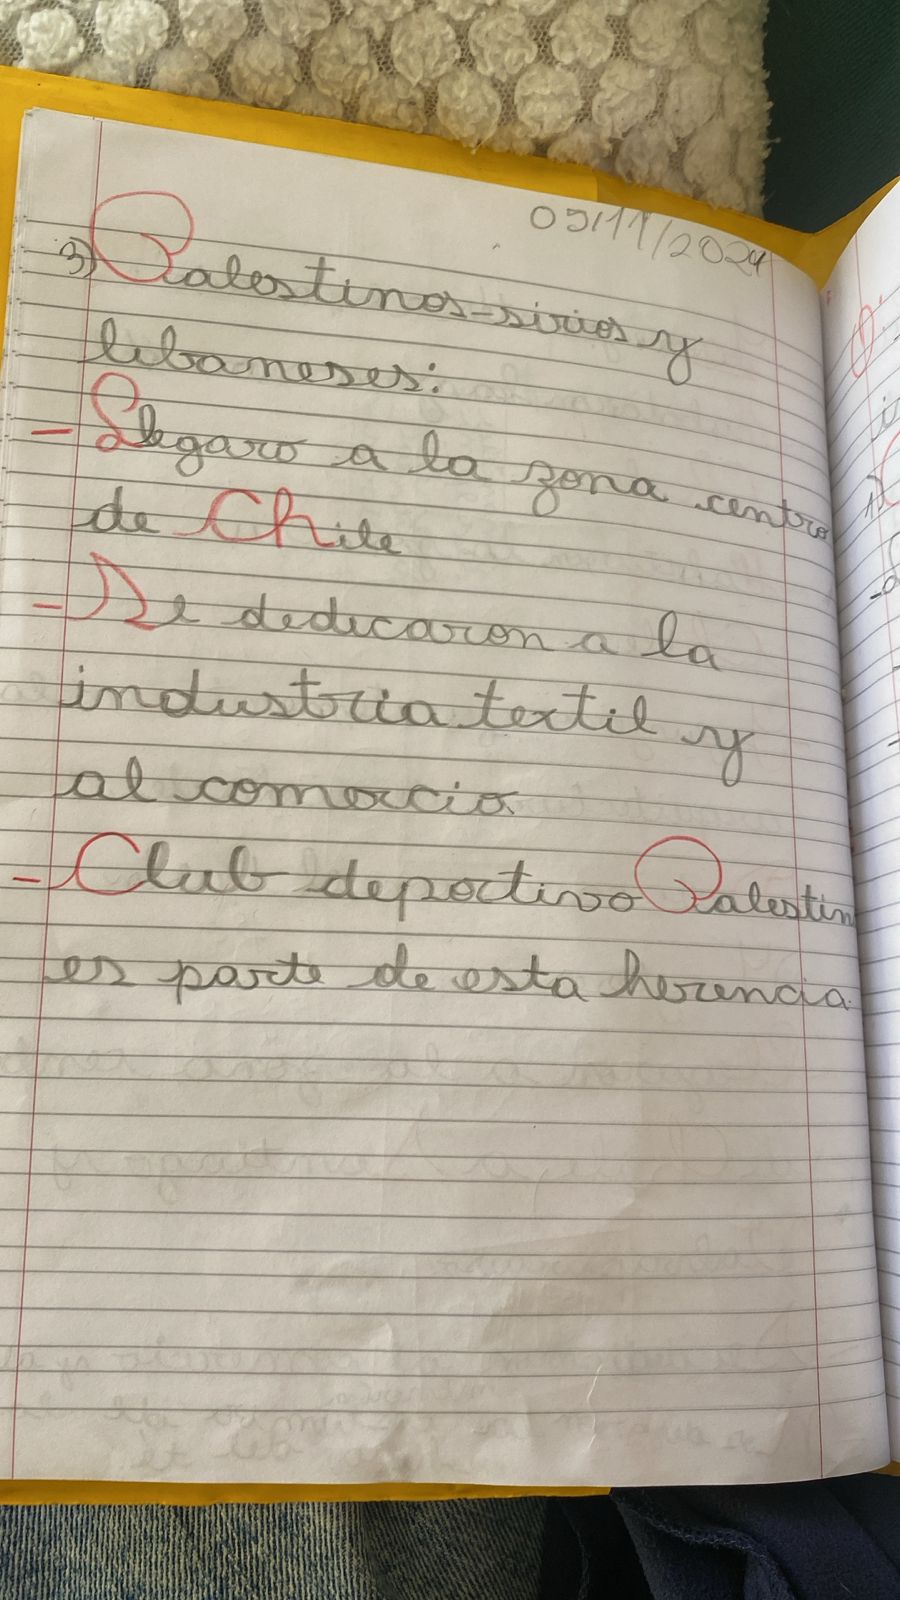 05/11/2024
3) Palestinos-sirios y
libaneses:
- Llegaro a la zona centro
de Chile
- Se dedicaron a la
industria textil y
al comercio
- Club deportivo Palestin
es parte de esta herencia.